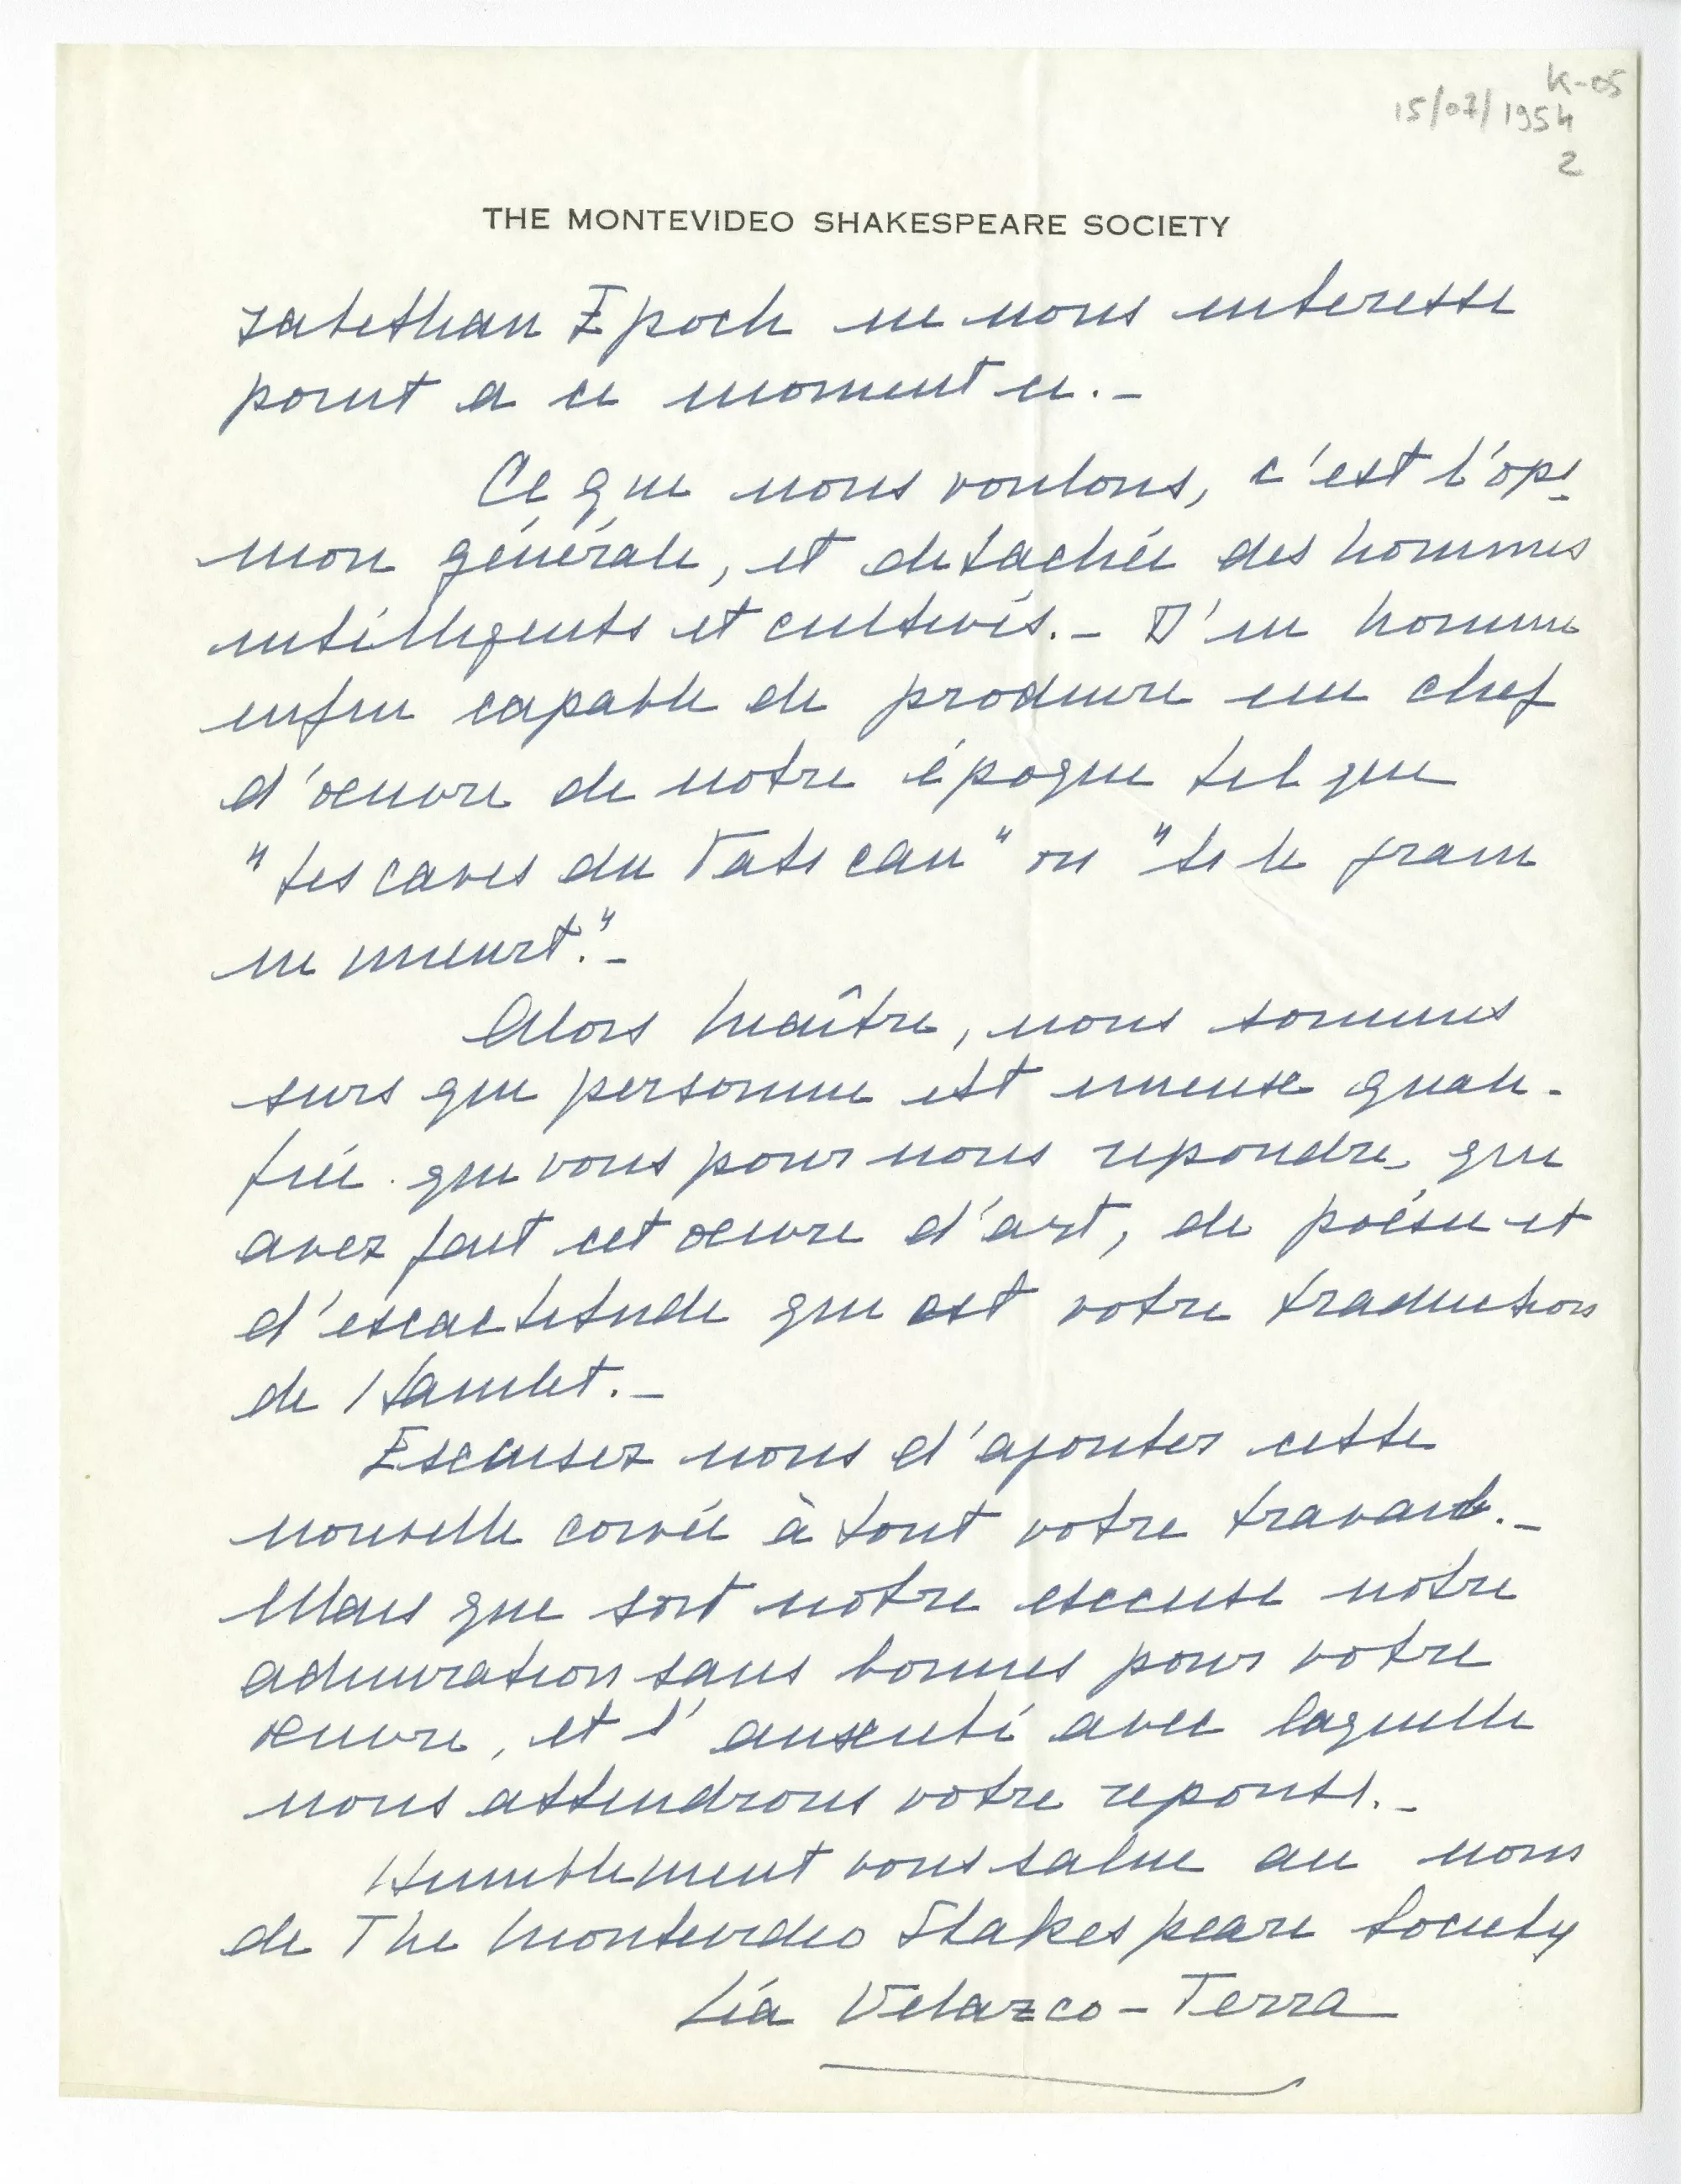 K-05
15/07/1954
2
THE MONTEVIDEO SHAKESPEARE SOCIETY
zabethan Epoch ne nous interesse
point a ce moment ci.-
Ce que nous voulons, c'est l'opi-
nion générale, et detachée des hommes
intélligents et cultivés.- D'un homme
enfin capable de produire un chef
d'oeuvre de notre époque tel que
"Les caves du Vatican" ou "Si le grain
ne meurt."-
Alors Maître, nous sommes
surs que personne est mieux quali-
fiée que vous pour nous repondre, qui
avez fait cet oeuvre d'art, de poésie et
d'escactitude que est votre traduction
de Hamlet.-
Escusez nous d'ajouter cette
nouvelle corvée à tout votre travail.-
Mais que soit notre escuse notre
admiration sans bornes pour votre
oeuvre, et l'anxieté avec laquelle
nous attendrons votre reponse.-
Humblement vous salue au nom
de The Montevideo Shakespeare Society
Lía Velazco-Terra